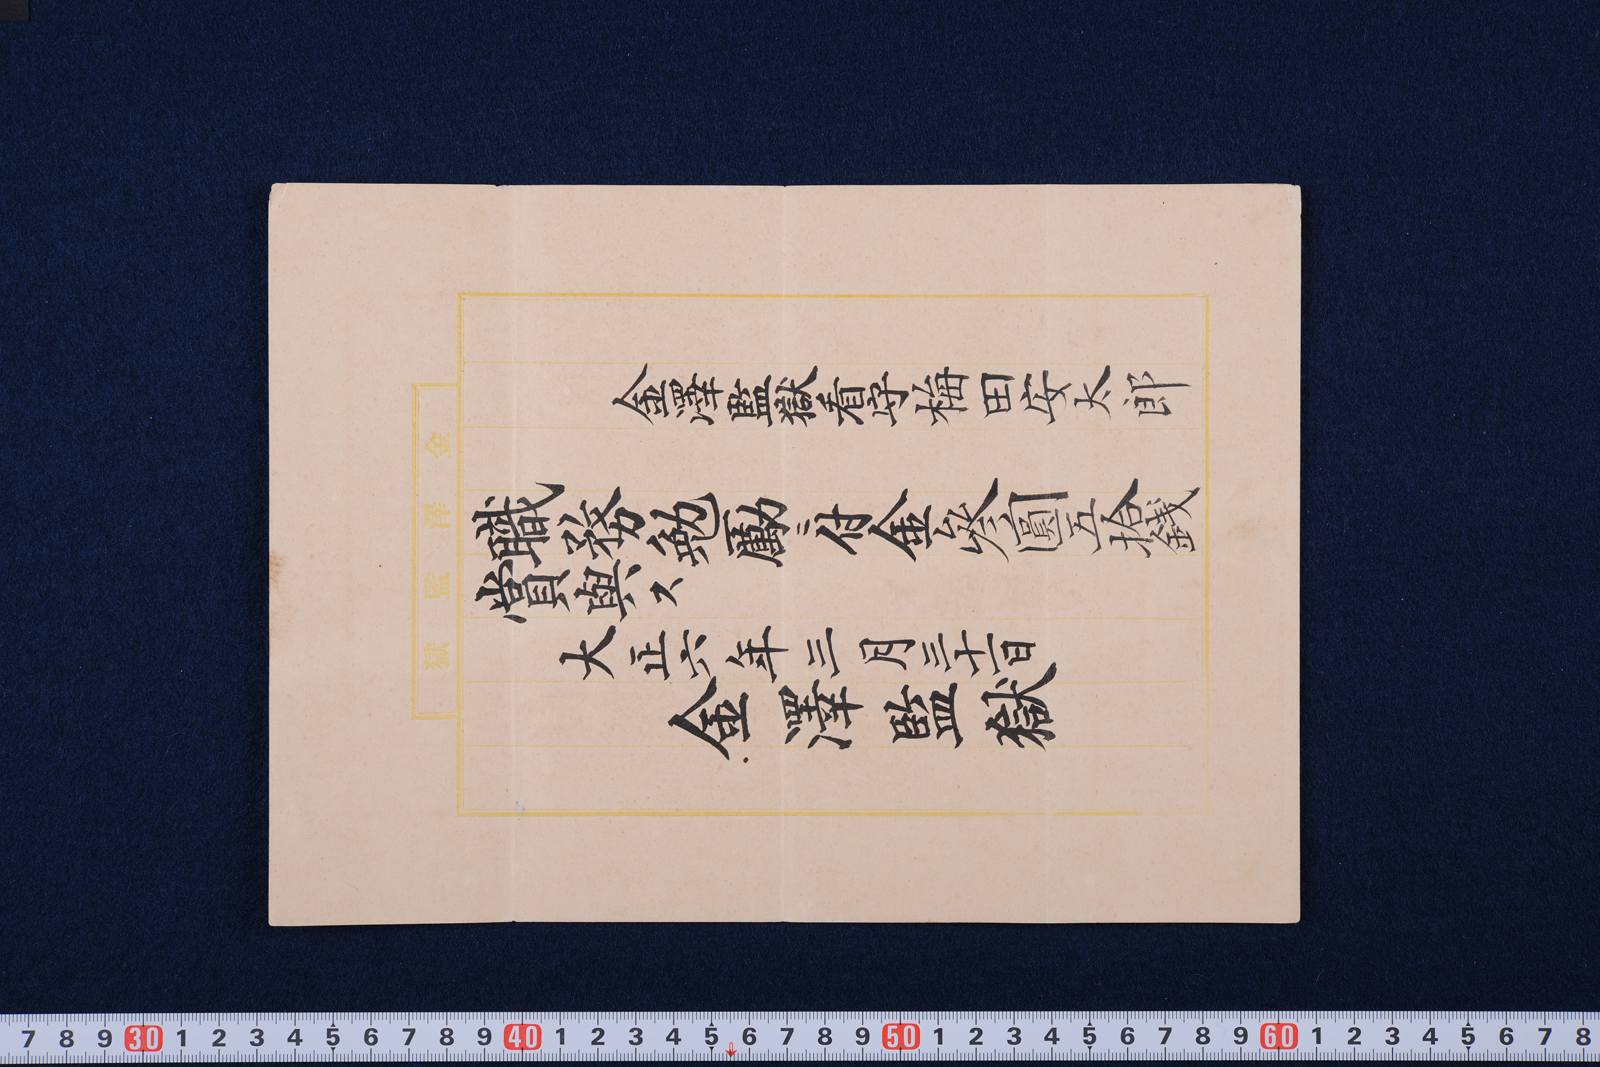 金澤監獄看守梅田安太郎
職務勉勵ニ付金參圓五拾錢
賞與ス
大正六年三月三十一日
金澤監獄
金澤監獄
7 8 9 30 1 2 3 4 5 6 7 8 9 40 1 2 3 4 5 6 7 8 9 50 1 2 3 4 5 6 7 8 9 60 1 2 3 4 5 6 7 8